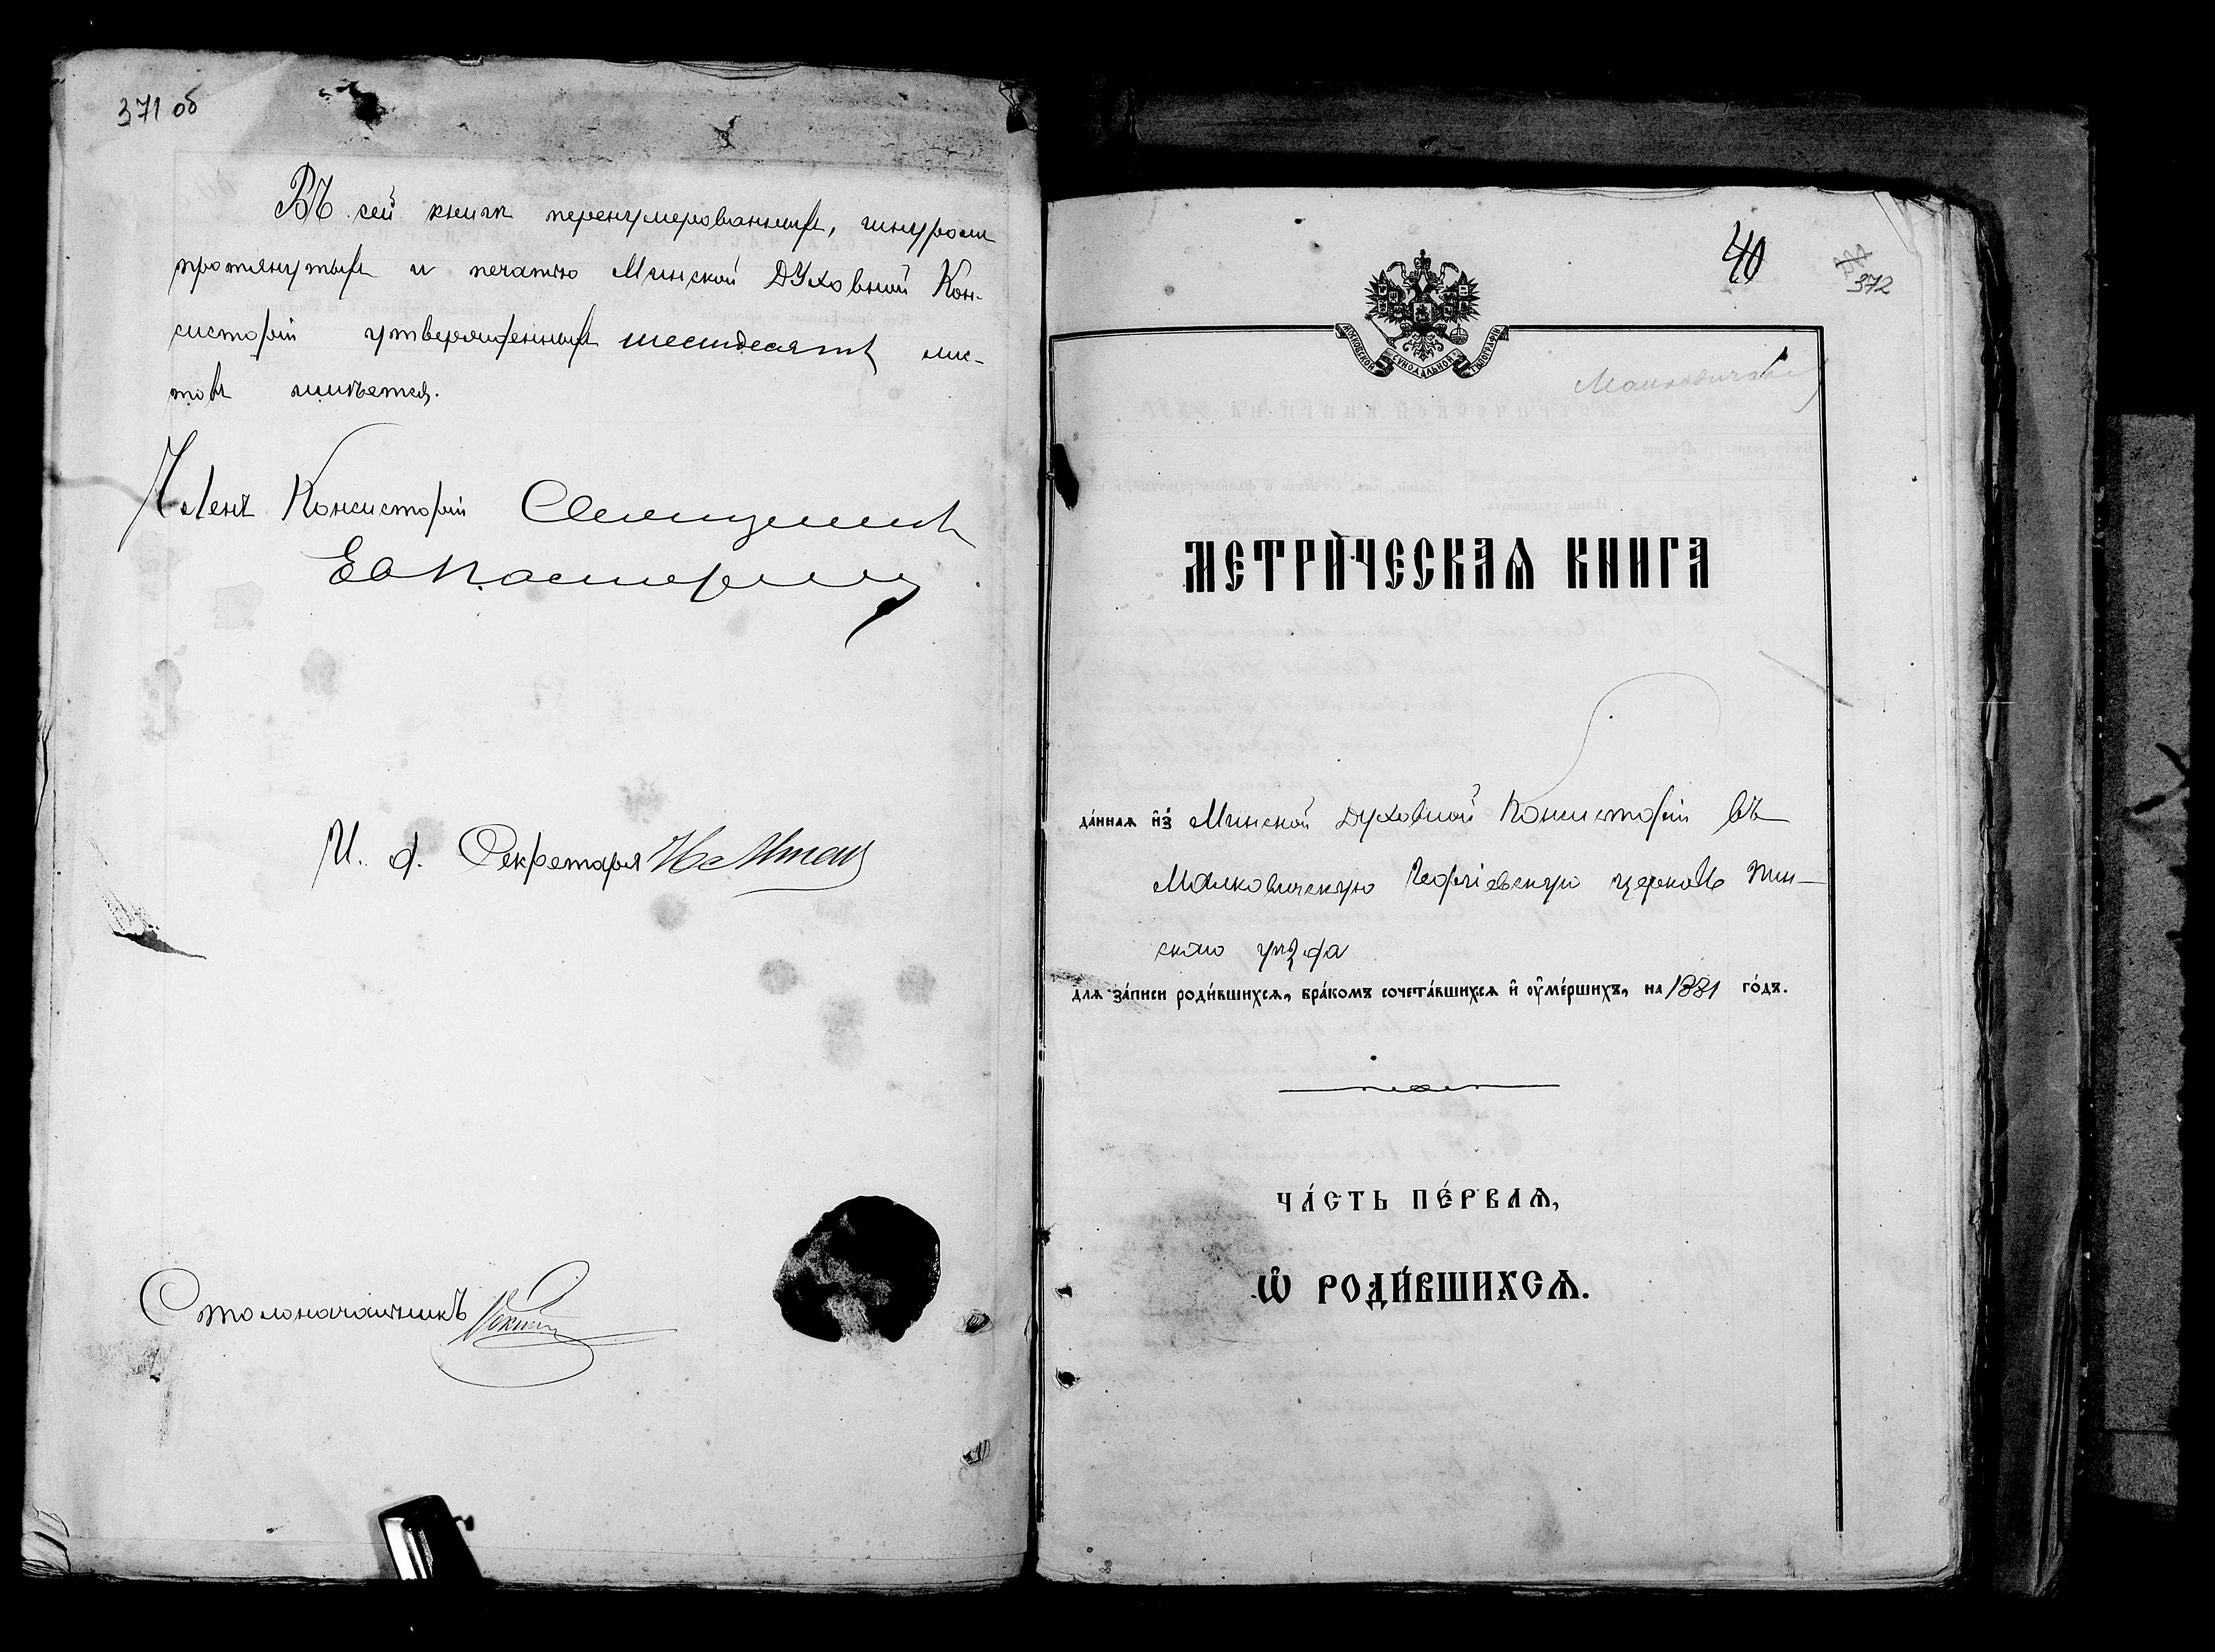 371 об
Въ сей книгѣ перенумерованныхъ, шнуромъ
протянутыхъ и печатью Минской Духовной Кон-
систоріи утвержденныхъ шестьдесятъ лис-
товъ имѣется.
Членъ Консисторіи Священникъ
И. д. Секретаря
Столоначальникъ
40
372
МОСКОВСКОЙ СѴНОДАЛЬНОЙ ТѴПОГРАФІИ
МЕТРИ́ЧЕСКАѦ КНИГА
да́ннаѧ и҆з̾ Минской Духовной Консисторіи въ
Малковическую Георгіевскую церковь Пин-
скаго уѣзда
для за́писи роди́вшихсѧ, бра́комъ сочета́вшихсѧ и҆ ᲂу҆ме́ршихъ, на 1881 го́дъ.
ЧА́СТЬ ПЕ́РВАѦ,
Ѡ҆ РОДИ́ВШИХСѦ.